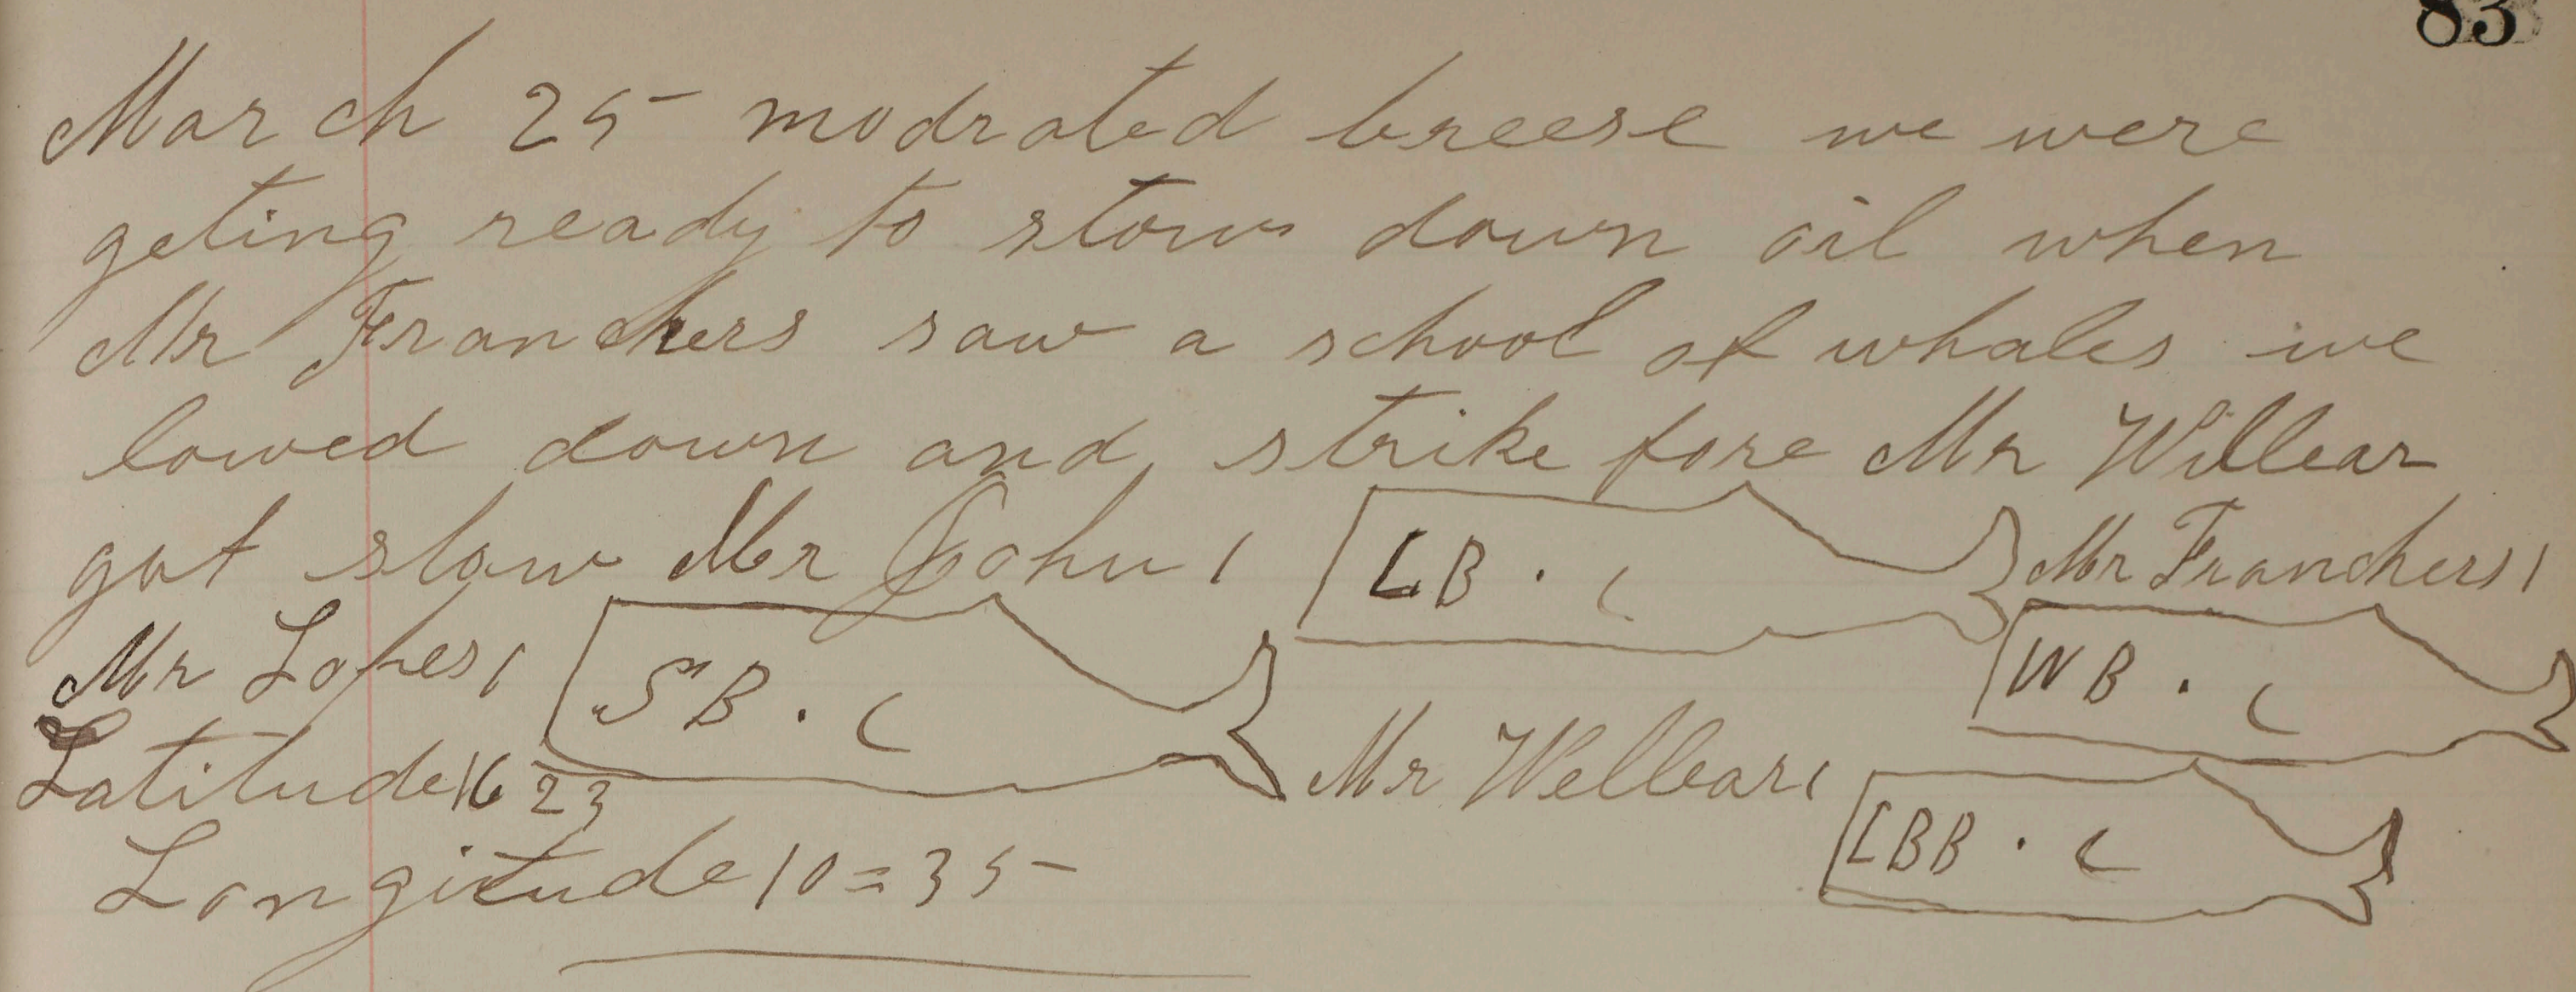 83
March 25 modrated breese we were
geting ready to stow down oil when
Mr Franchers saw a school of whales we
lowed down and strike fore Mr Willbar
got slow Mr John 1 LB . Mr Franchers 1
Mr Lopes 1 SB . WB .
Latitude 16 23 Mr Wellbar 1
Longitude 10=35 LBB .